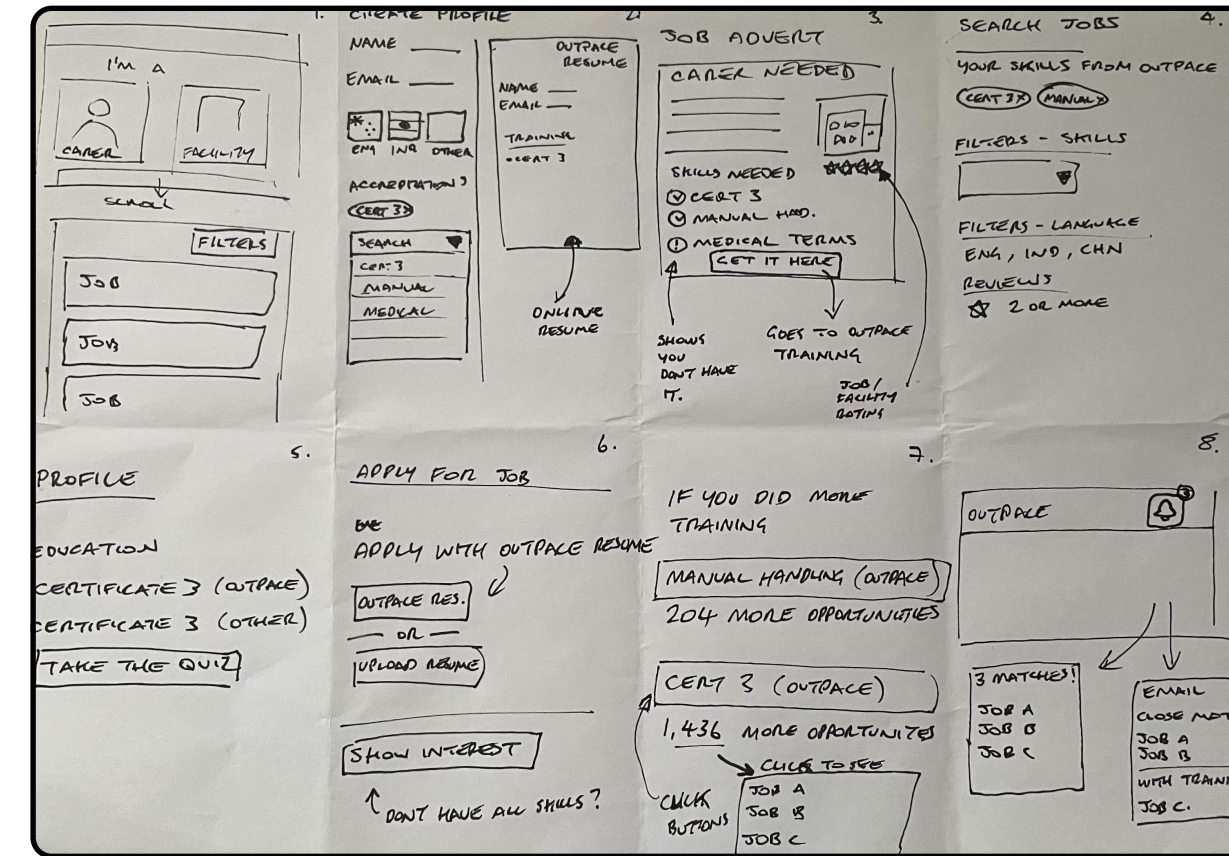 1.
I'M A
CARER
FACILITY
SCROLL
FILTERS
JOB
JOB
JOB
2.
CREATE PROFILE
NAME
EMAIL
ENG IND OTHER
ACCREDITATIONS
CERT 3 X
SEARCH
CERT 3
MANUAL
MEDICAL
OUTPACE
RESUME
NAME
EMAIL
TRAINING
• CERT 3
ONLINE
RESUME
3.
JOB ADVERT
CARER NEEDED
SKILLS NEEDED
CERT 3
MANUAL HAD.
! MEDICAL TERMS
GET IT HERE
SHOWS
YOU
DONT HAVE
IT.
GOES TO OUTPACE
TRAINING
JOB/
FACILITY
RATING
4.
SEARCH JOBS
YOUR SKILLS FROM OUTPACE
CERT 3 X MANUAL X
FILTERS - SKILLS
FILTERS - LANGUAGE
ENG, IND, CHN
REVIEWS
2 OR MORE
5.
PROFILE
EDUCATION
CERTIFICATE 3 (OUTPACE)
CERTIFICATE 3 (OTHER)
TAKE THE QUIZ
6.
APPLY FOR JOB
APPLY WITH OUTPACE RESUME
OUTPACE RES.
— OR —
UPLOAD RESUME
SHOW INTEREST
DONT HAVE ALL SKILLS?
7.
IF YOU DID MORE
TRAINING
MANUAL HANDLING (OUTPACE)
204 MORE OPPORTUNITIES
CERT 3 (OUTPACE)
1,436 MORE OPPORTUNITES
CLICK TO SEE
JOB A
JOB B
JOB C
CLICK
BUTTONS
8.
OUTPACE
3
3 MATCHES!
JOB A
JOB B
JOB C
EMAIL
CLOSE MAT
JOB A
JOB B
WITH TRAINI
JOB C.